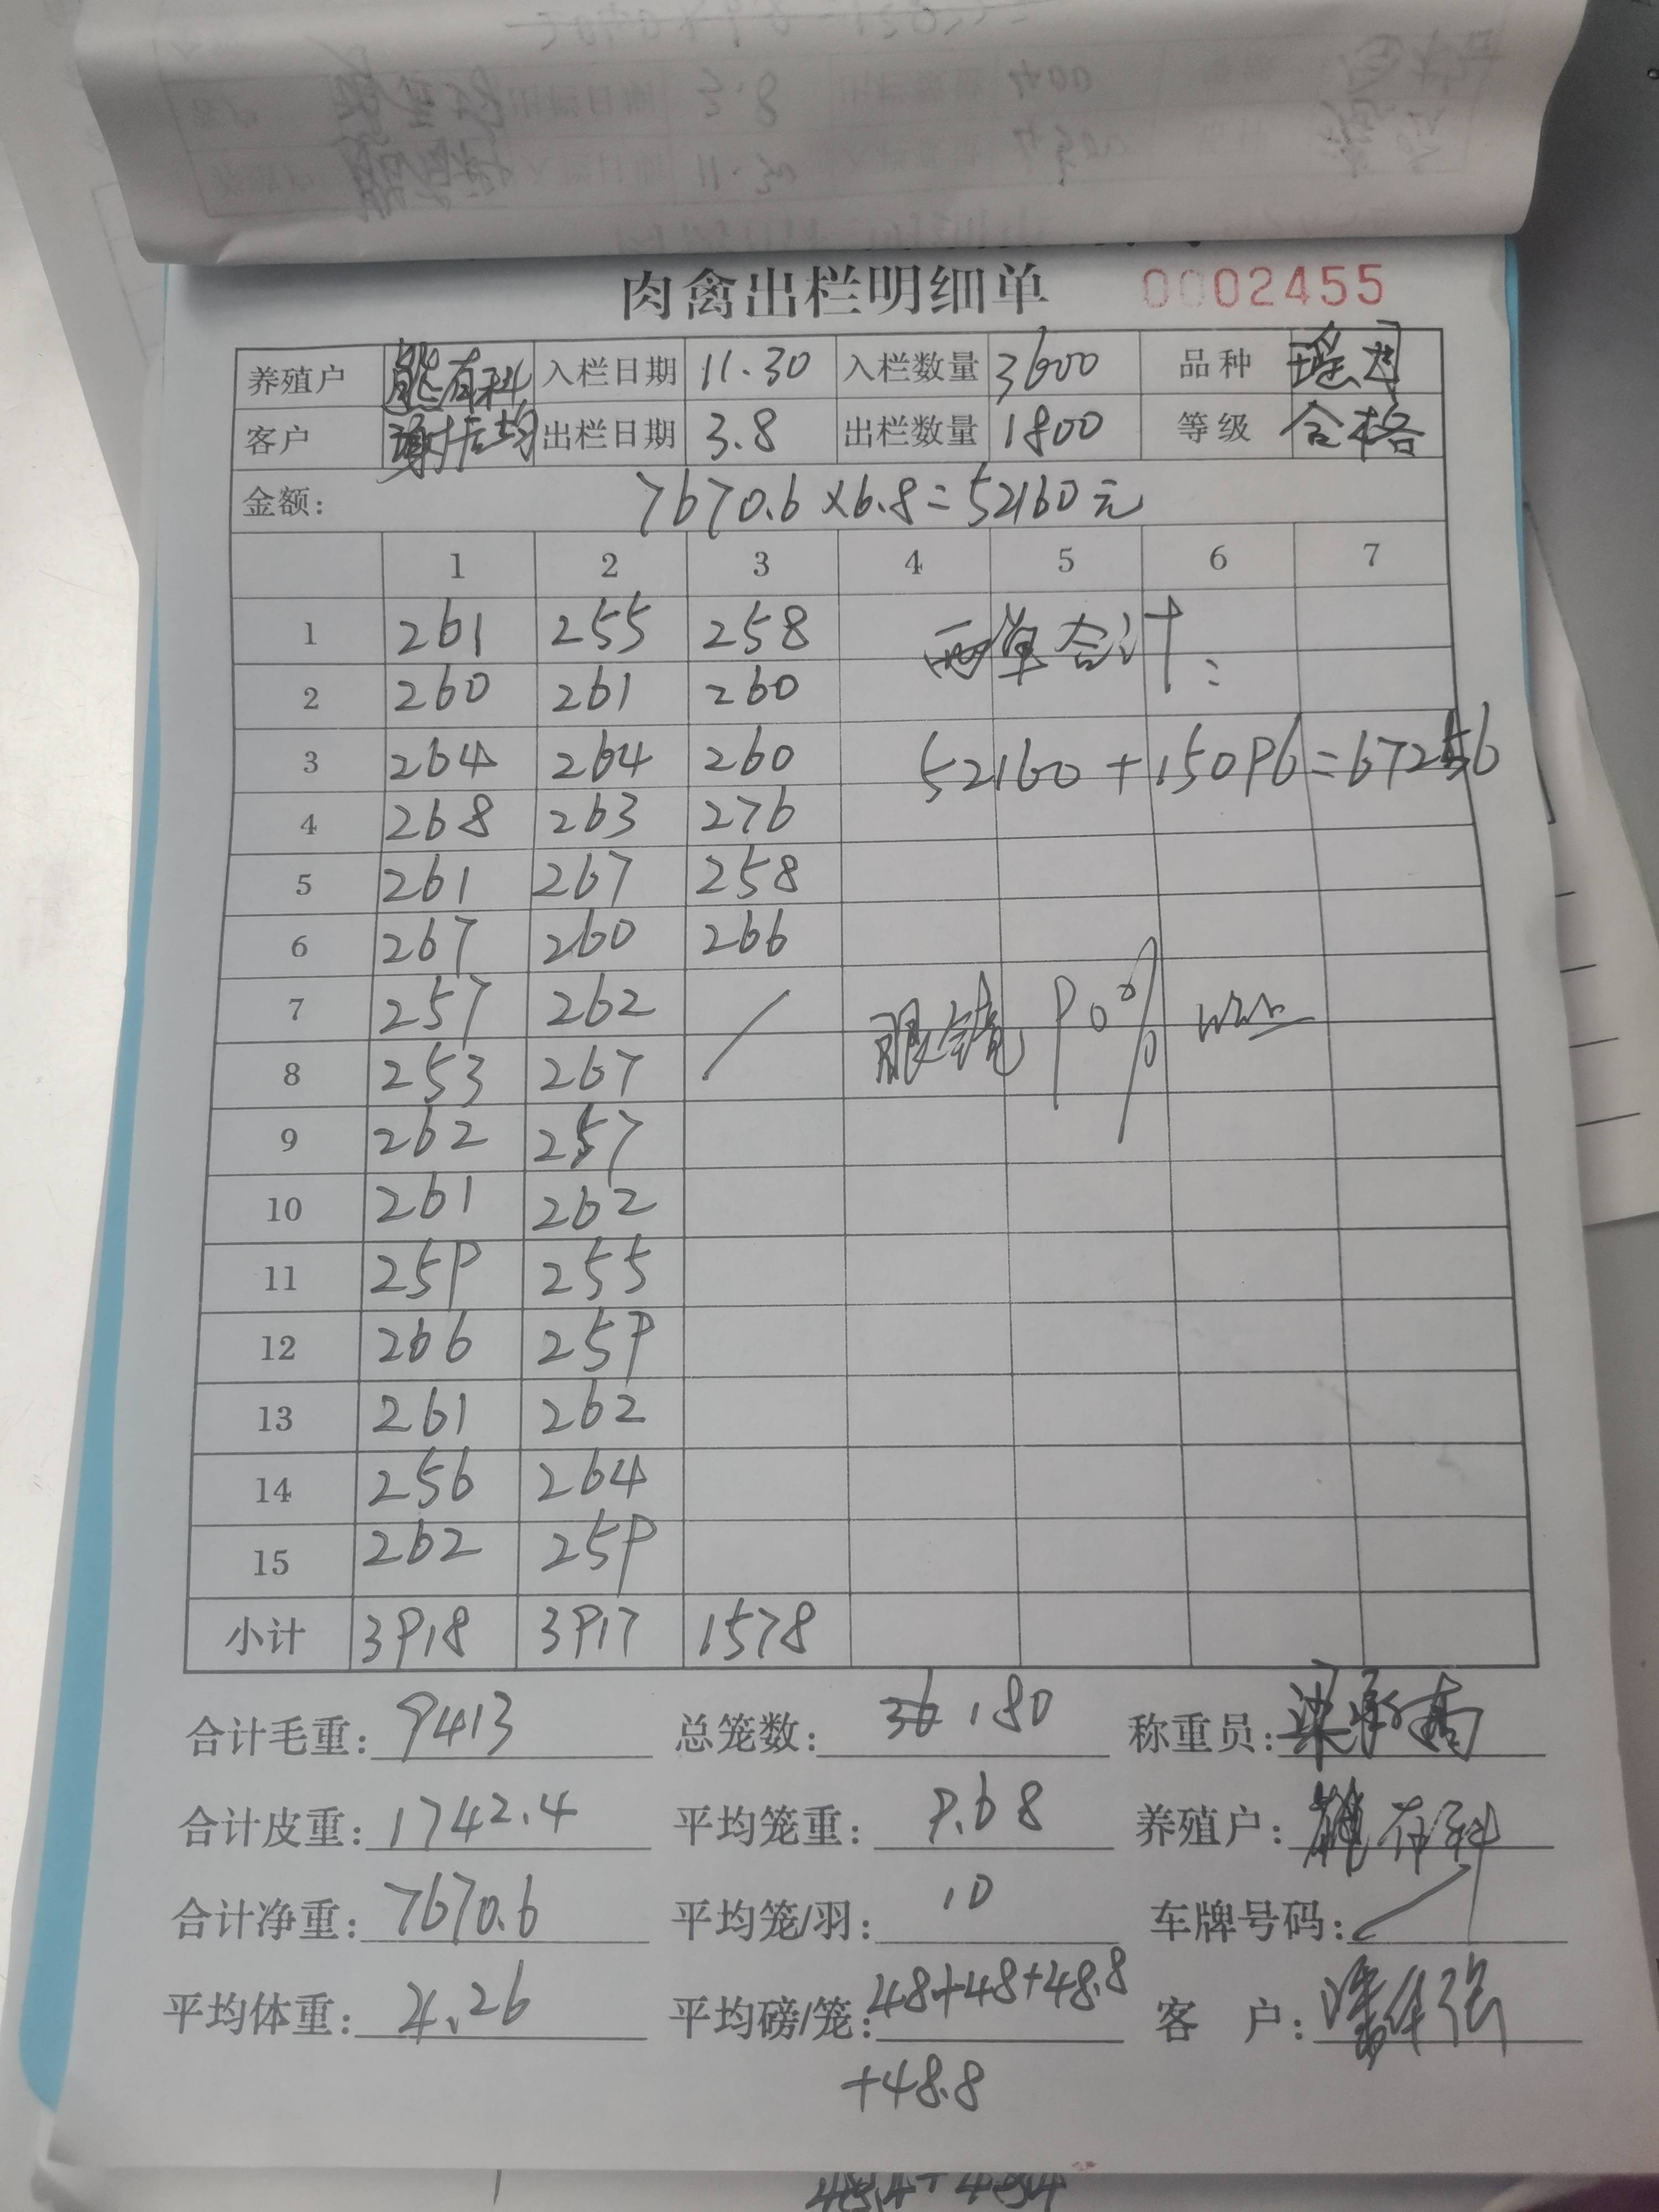 肉禽出栏明细单 0002455
养殖户 熊有科 入栏日期 11.30 入栏数量 3600 品种
客户 出栏日期 3.8 出栏数量 1800 等级 合格
金额: 7670.6×6.8=52160元
1 2 3 4 5 6 7
1 261 255 258 两单合计:
2 260 261 260
3 264 264 260 52160+15096=67256
4 268 263 276
5 261 267 258
6 267 260 266
7 257 262 /
8 253 267 眼镜 90%
9 262 257
10 261 262
11 259 255
12 266 259
13 261 262
14 256 264
15 262 259
小计 3918 3917 1578
合计毛重: 9413 总笼数: 36 180 称重员:
合计皮重: 1742.4 平均笼重: 9.68 养殖户: 熊有科
合计净重: 7670.6 平均笼/羽: 10 车牌号码: /
平均体重: 4.26 平均磅/笼: 48+48+48.8 客户:
+48.8